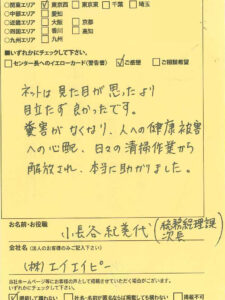 ○関東エリア ☑東京西 □東京東 □千葉 □埼玉
○中部エリア □愛知
○近畿エリア □大阪 □京都
○四国エリア □香川 □高知
○九州エリア □九州
■いずれかにチェックして下さい。
□センター長へのイエローカード(警告書) ☑ご感想 □ご相談希望
ネットは見た目が思ったより
目立たず良かったです。
糞害がなくなり、人への健康被害
への心配、日々の清掃作業から
解放され、本当に助かりました。
お名前・お役職
小長谷紀美代(総務経理課 次長)
会社名(法人のお客様のみご記入下さい)
(株)エイエイピー
当社ホームページ等にお客様の声として掲載させていただく場合がございます。
いずれかにチェックして下さい。
☑掲載して構わない □社名・名前が匿名ならば掲載しても構わない